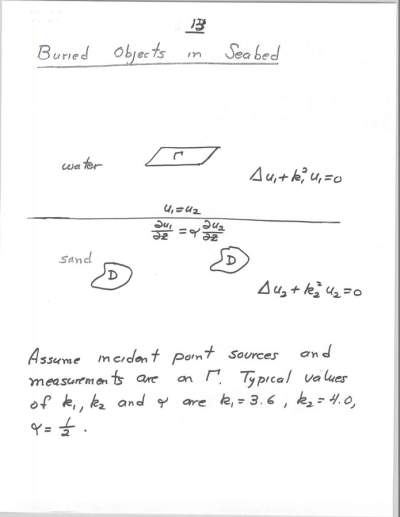 13
Buried Objects in Seabed
Γ
water
Δu₁+k₁²u₁=0
u₁=u₂
∂u₁/∂z = γ ∂u₂/∂z
sand
D
D
Δu₂+k₂²u₂=0
Assume incident point sources and
measurements are on Γ. Typical values
of k₁, k₂ and γ are k₁=3.6, k₂=4.0,
γ=1/2.